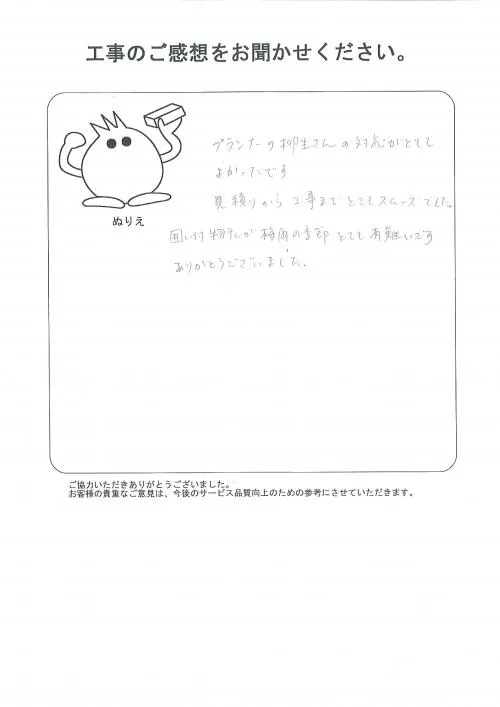 工事のご感想をお聞かせください。
ぬりえ
プランナーの柳生さんの対応がとても
よかったです。
見積りから工事までとてもスムーズでした。
囲い付物干しが梅雨の季節とても有難いです
ありがとうございました。
ご協力いただきありがとうございました。
お客様の貴重なご意見は、今後のサービス品質向上のための参考にさせていただきます。